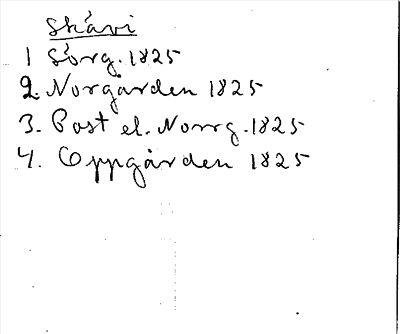 Skåvi
1 Sörg. 1825
2. Norgården 1825
3. Post el. Norrg. 1825
4. Oppgården 1825